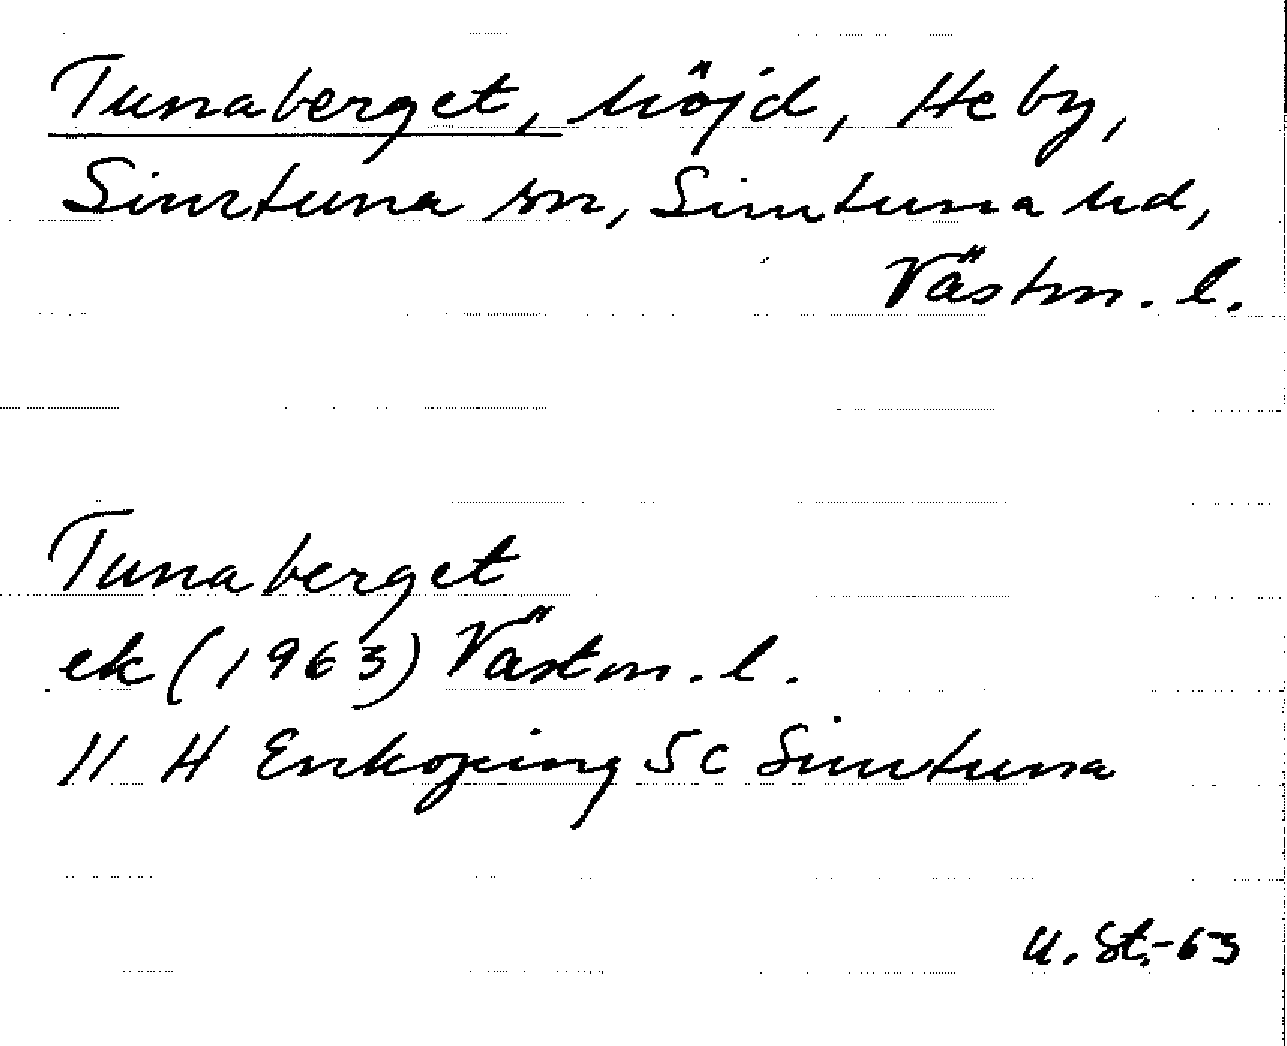 Tunaberget, höjd, Heby,
Simtuna sn, Simtuna hd,
Västm. l.
Tunaberget
ek (1963) Västm. l.
11 H Enköping SC Simtuna
U. St.-63